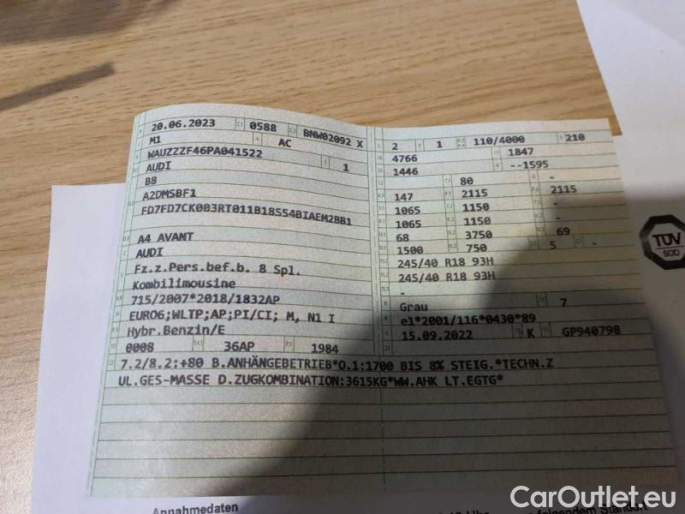 20.06.2023 0588 BNW02092 X
M1 AC
WAUZZZF46PA041522 1
AUDI
B8
A2DMSBF1
FD7FD7CK003RT011B18554BIAEM2BB1
A4 AVANT
AUDI
Fz.z.Pers.bef.b. 8 Spl.
Kombilimousine
715/2007*2018/1832AP
EURO6;WLTP;AP;PI/CI; M, N1 I
Hybr.Benzin/E
0008 36AP 1984
2 1 110/4000 210
4766 1847
1446 --1595
80 -
147 2115 2115
1065 1150 -
1065 1150 -
68 3750 69
1500 750 5 -
245/40 R18 93H
245/40 R18 93H
-
Grau 7
e1*2001/116*0430*89
15.09.2022 K GP940798
7.2/8.2:+80 B.ANHÄNGEBETRIEB*O.1:1700 BIS 8% STEIG.*TECHN.Z
UL.GES-MASSE D.ZUGKOMBINATION:3615KG*WW.AHK LT.EGTG*
TÜV
SÜD
Annahmedaten
feinsendem Standort
CarOutlet.eu